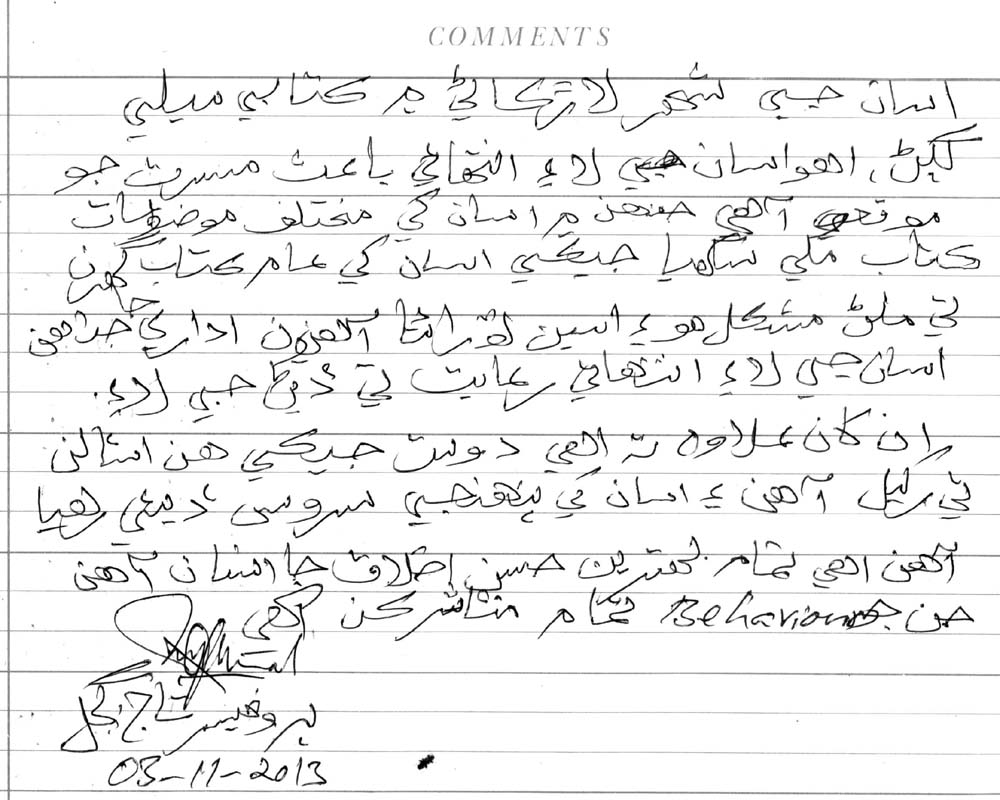 COMMENTS
اسان جي شهر لاڙڪاڻي ۾ ڪتابي ميلي
لڳڻ، اهو اسان جي لاءِ انتهائي باعث مسرت جو
موقعو آهي جنهن ۾ اسان کي مختلف موضوعات
ڪتاب ملي سگهيا جيڪي اسان کي عام ڪتاب گهرن
تي ملڻ مشڪل هو ۽ اسين ٿورائتا آهيون اداري جا جنهن
اسان جي لاءِ انتهائي رعايت تي ڏيڻ جي لاءِ.
ان کان علاوه ته اهي دوست جيڪي هن اسٽالن
تي رکيل آهن ۽ اسان کي پنهنجي سروس ڏيئي رهيا
آهن اهي تمام بهترين حسن اخلاق جا انسان آهن
جن جو Behaviour تمام متاثر ڪن آهي
پروفيسر تاج
03-11-2013